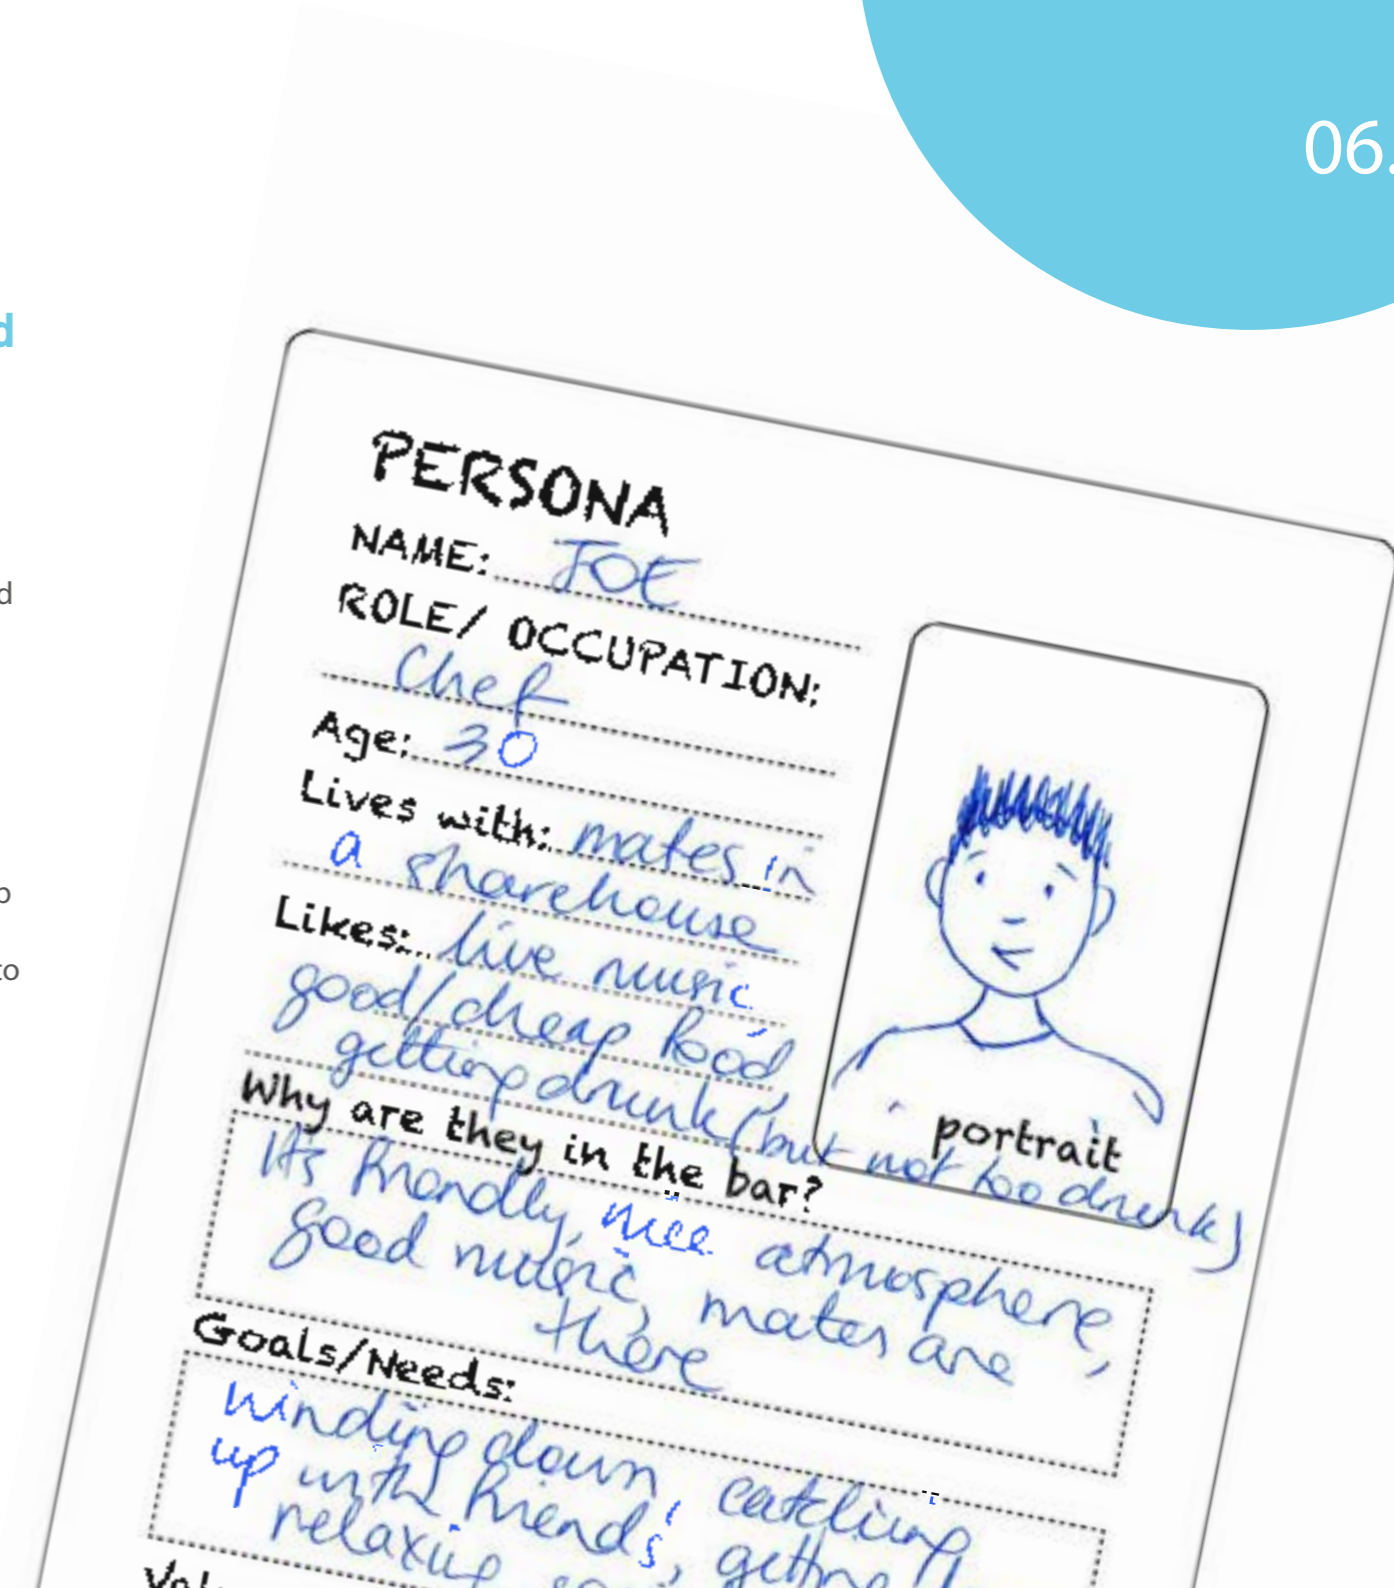 06.
d
d
p
to
PERSONA
NAME: JOE
ROLE/ OCCUPATION:
Chef
Age: 30
Lives with: mates in
a sharehouse
Likes: live music,
good/cheap food,
getting drunk (but not too drunk)
portrait
Why are they in the bar?
It's friendly, nice atmosphere,
good music, mates are
there
Goals/Needs:
Winding down, catching
up with friends, getting
relaxing